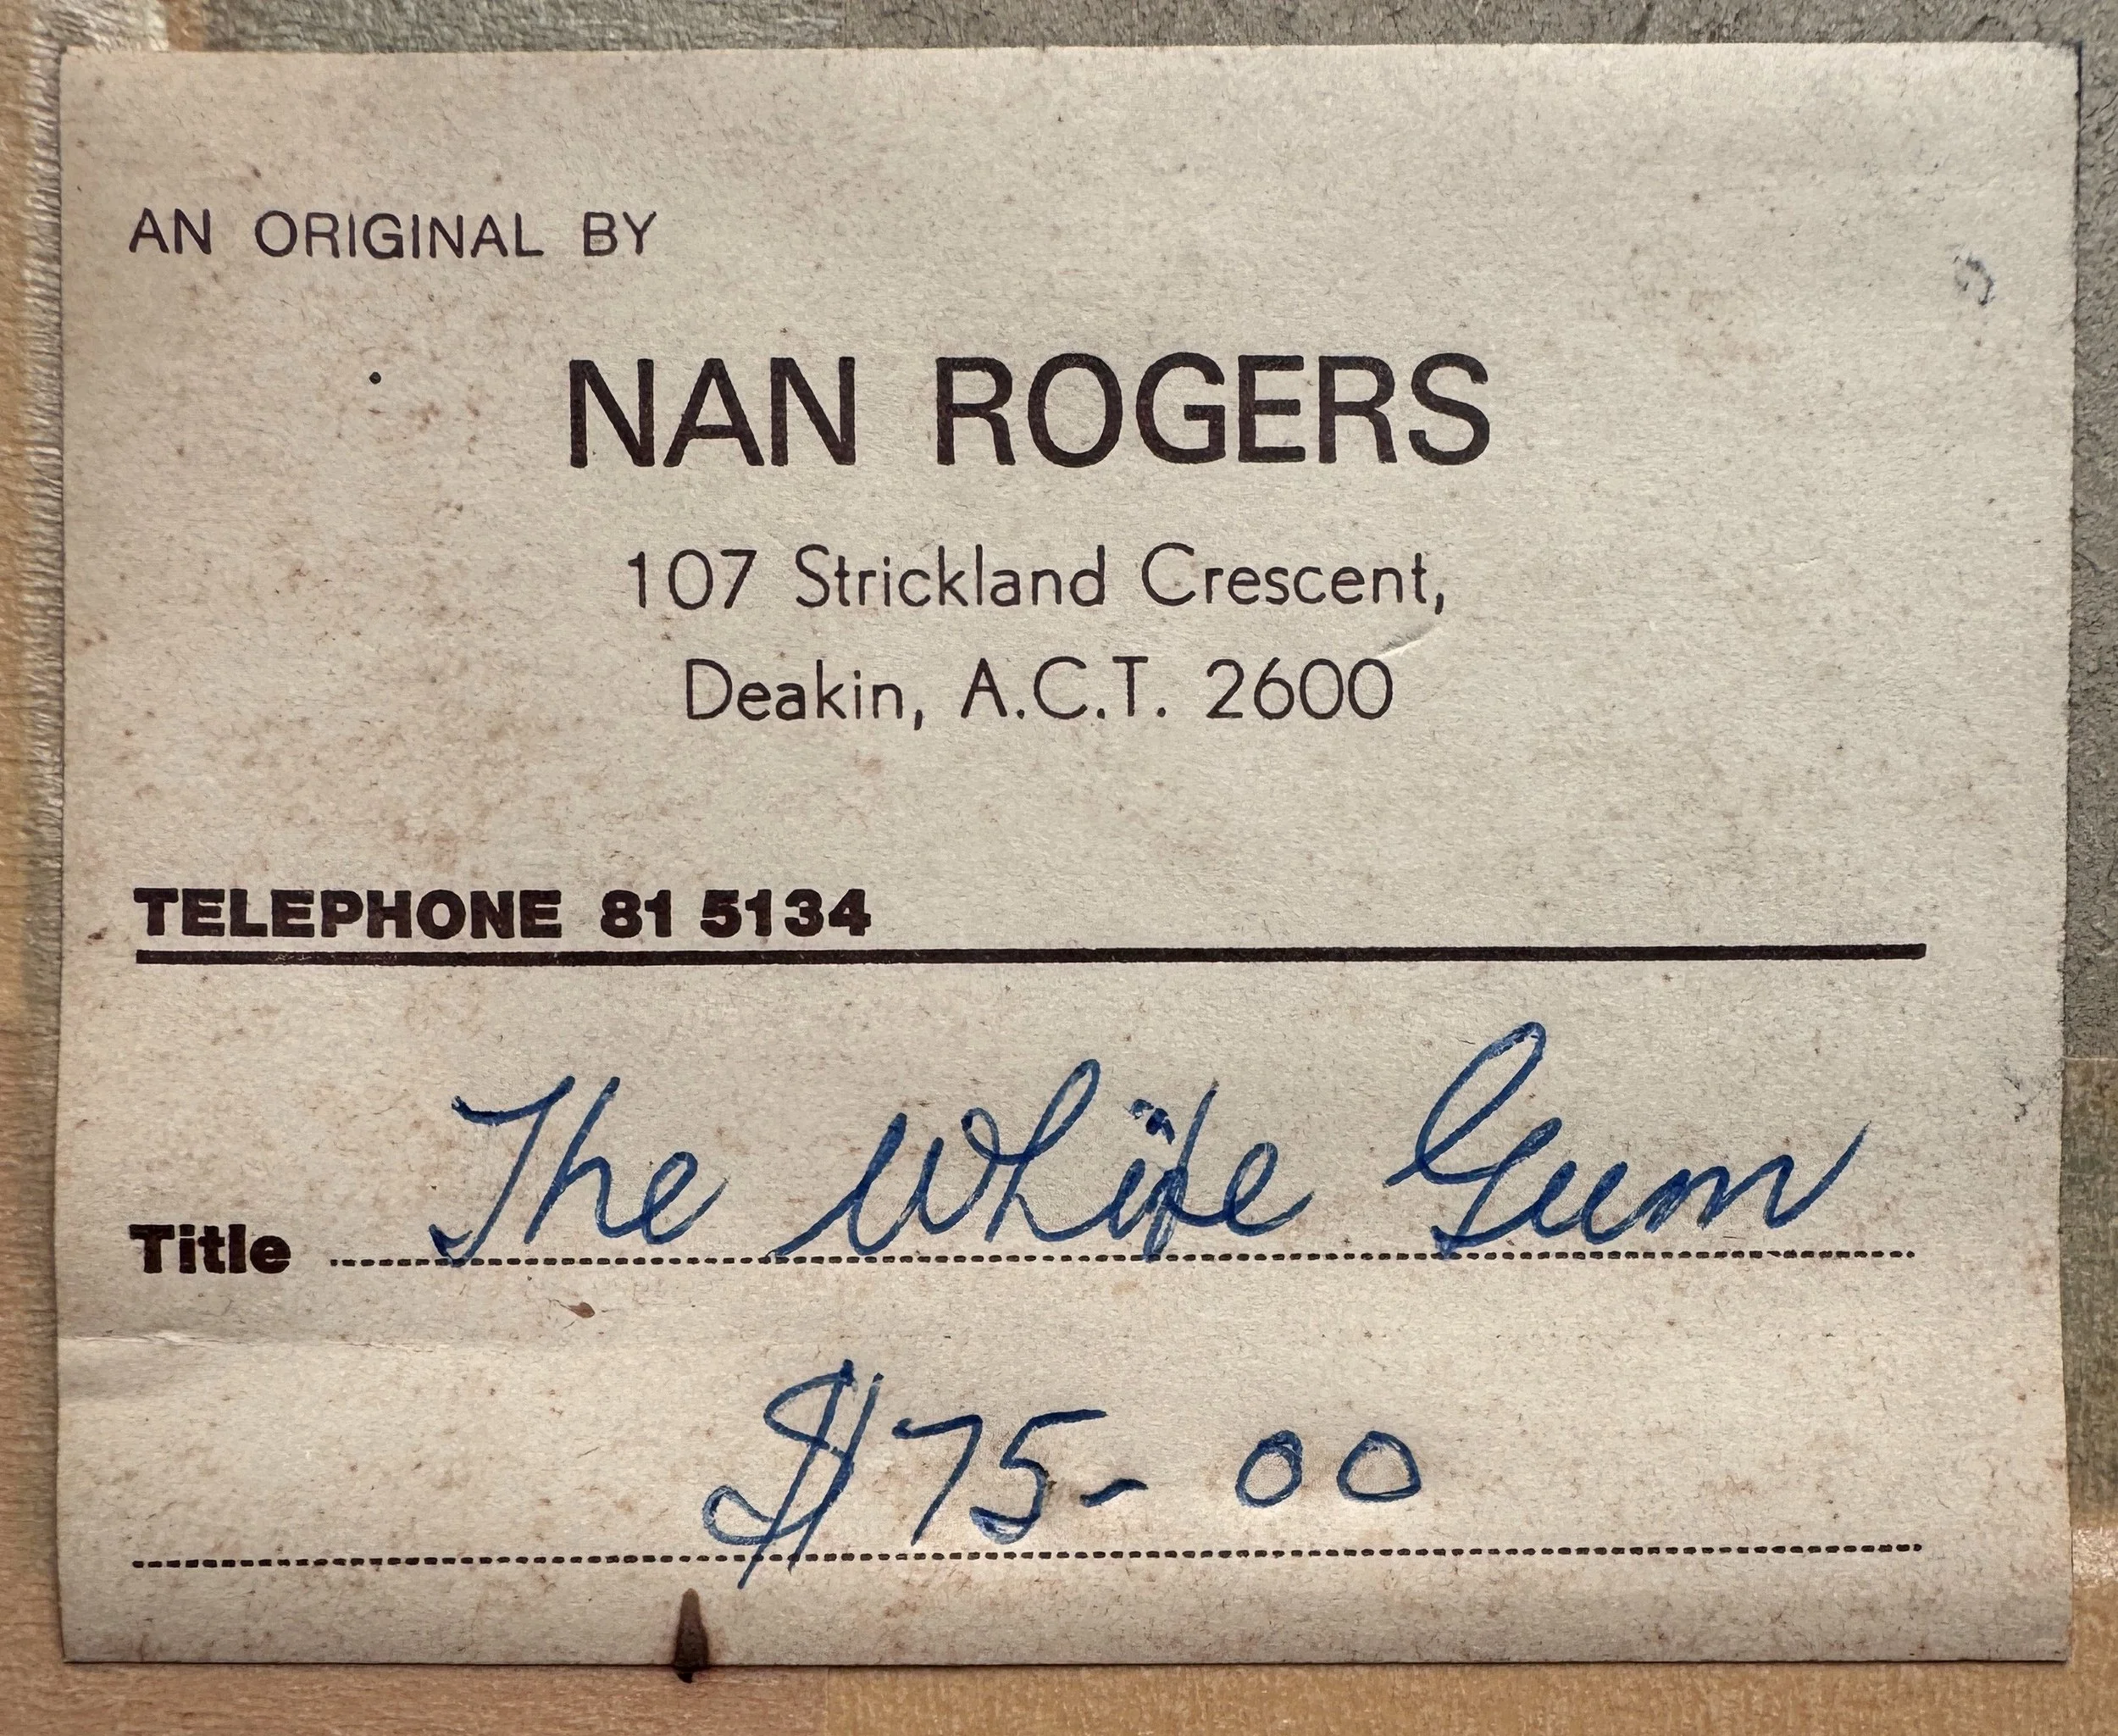 AN ORIGINAL BY
NAN ROGERS
107 Strickland Crescent,
Deakin, A.C.T. 2600
TELEPHONE 81 5134
Title The White Gum
$75-00